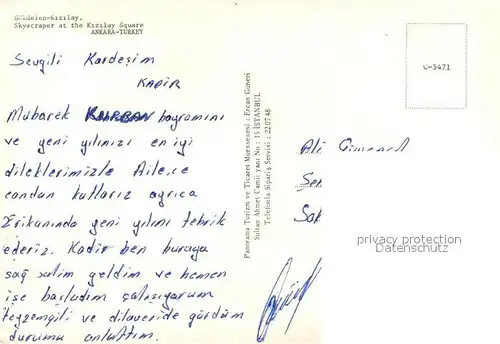 Gökdelen-Kızılay.
Skyscraper at the Kızılay Square
ANKARA-TURKEY
C-5471
Sevgili Kardeşim
KADİR
Mübarek KURBAN bayramını
ve yeni yılınızı en iyi
dileklerimizle Ailece
candan kutlarız ayrıca
yeni yılını tebrik
ederiz. Kadir ben buraya
sağ salim geldim ve hemen
işe başladım çalışıyorum
teyzemgili ve dilaveride gördüm
durumu anlattım.
Panorama Turizm ve Ticaret Muessesesi : Ercan Güneri
Sultan Ahmet Camii yanı No : 15 İSTANBUL
Telefonla Sipariş Servisi : 220748
Ali
privacy protection
Datenschutz